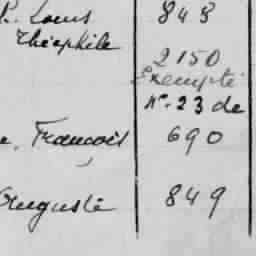 P. Louis 848
Théophile
2150
Exempté
n°. 23 de
e. François 690
Auguste 849